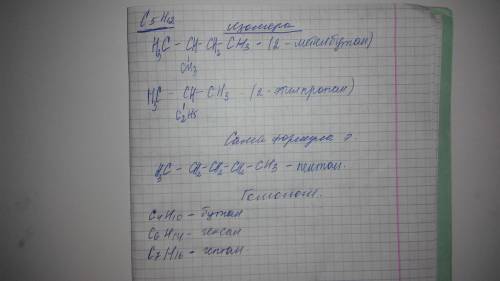 C5H12 изомера
H3C - CH - CH2 - CH3 - (2 - метилбутан)
CH3
H3C - CH - CH3 - (2 - этилпропан)
C2H5
Самой формула
H3C - CH2 - CH2 - CH2 - CH3 - пентан.
Гомологи.
C4H10 - бутан
C6H14 - гексан
C7H16 - гептан